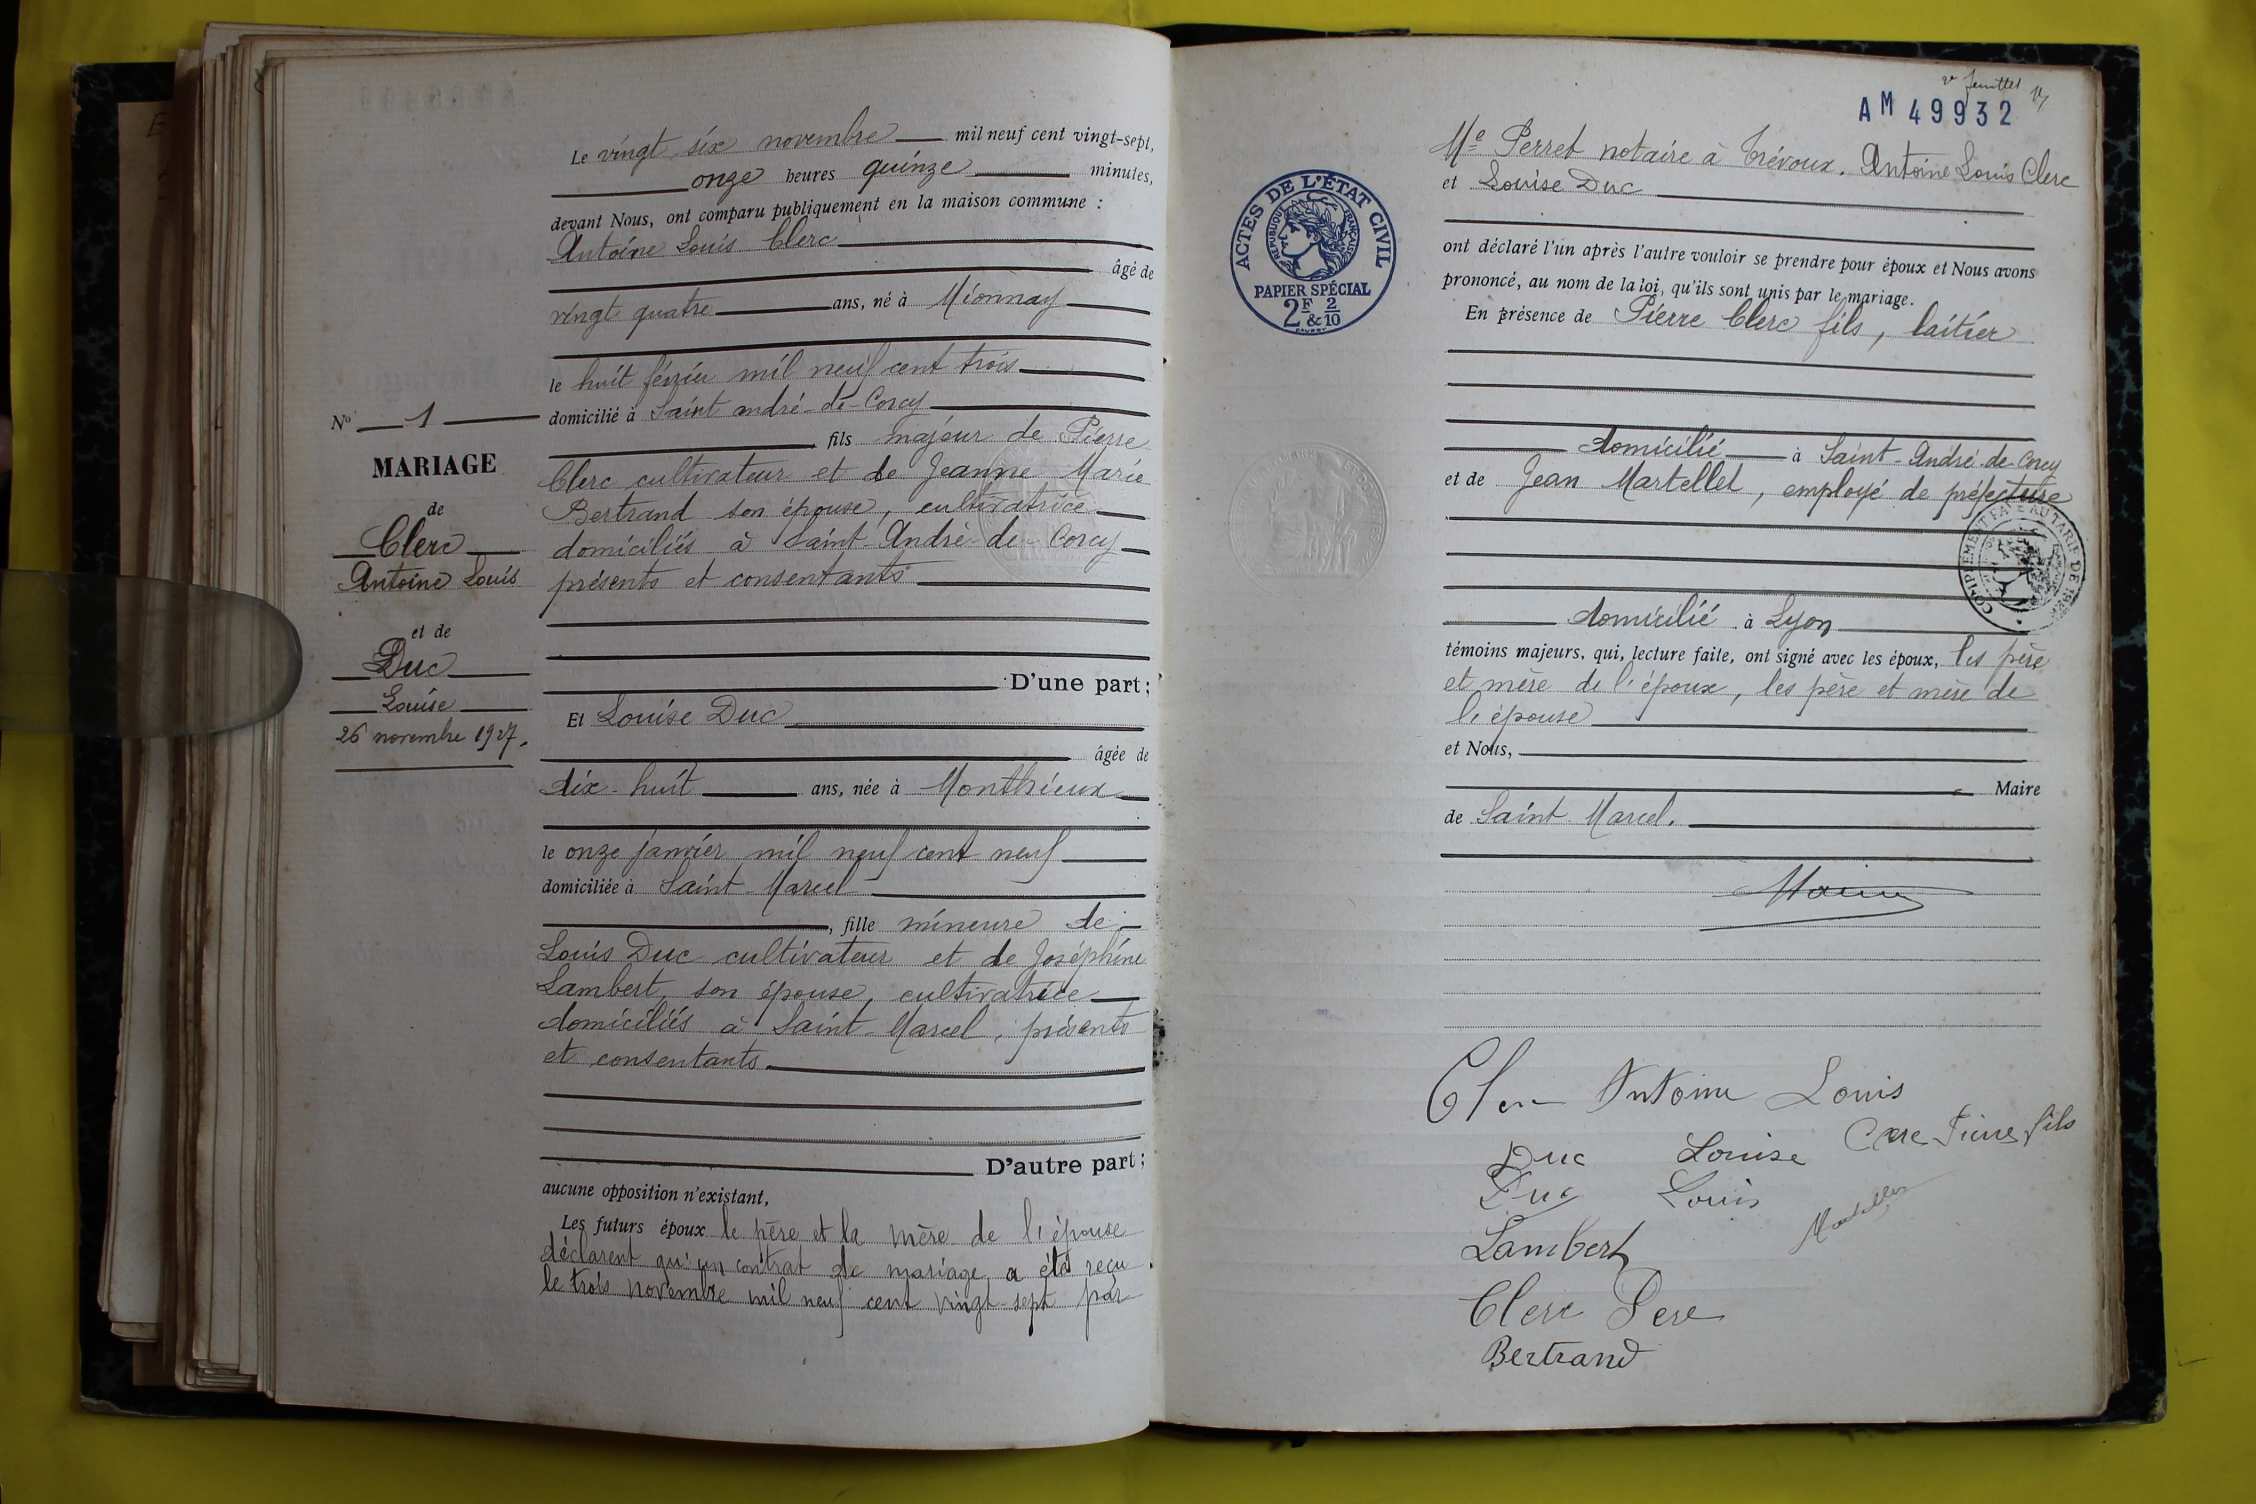 Le vingt six novembre mil neuf cent vingt-sept,
onze heures quinze minutes,
devant Nous, ont comparu publiquement en la maison commune :
Antoine Louis Clerc
âgé de
vingt quatre ans, né à Mionnay
le huit février mil neuf cent trois
domicilié à Saint andré-de-Corcy
fils majeur de Pierre
Clerc cultivateur et de Jeanne Marie
Bertrand son épouse, cultivatrice
domiciliés à Saint-André-de-Corcy
présents et consentants
D'une part ;
Et Louise Duc
âgée de
dix-huit ans, née à Monthieux
le onze janvier mil neuf cent neuf
domiciliée à Saint Marcel
, fille mineure de
Louis Duc cultivateur et de Joséphine
Lambert son épouse, cultivatrice
domiciliés à Saint-Marcel, présents
et consentants.
D'autre part ;
aucune opposition n'existant,
Les futurs époux le père et la mère de l'épouse
déclarent qu'un contrat de mariage a été reçu
le trois novembre mil neuf cent vingt-sept par
No 1
MARIAGE
de
Clerc
Antoine Louis
et de
Duc
Louise
26 novembre 1927.
2e feuillet
AM 49932
Me Perret notaire à Trévoux. Antoine Louis Clerc
et Louise Duc
ont déclaré l'un après l'autre vouloir se prendre pour époux et Nous avons
prononcé, au nom de la loi, qu'ils sont unis par le mariage.
En présence de Pierre Clerc fils, laitier
domicilié à Saint-André-de-Corcy
et de Jean Martellet, employé de préfecture
domicilié à Lyon
témoins majeurs, qui, lecture faite, ont signé avec les époux, les père
et mère de l'époux, les père et mère de
l'épouse
et Nous,
Maire
de Saint Marcel.
ACTES DE L'ÉTAT CIVIL
RÉPUBLIQUE FRANÇAISE
PAPIER SPÉCIAL
2F & 2/10
COMPLÉMENT PAYÉ AU TARIF DE
Clerc Antoine Louis
Clerc Pierre fils
Duc Louise
Duc Louis
Martellet
Lambert
Clerc Pere
Bertrand